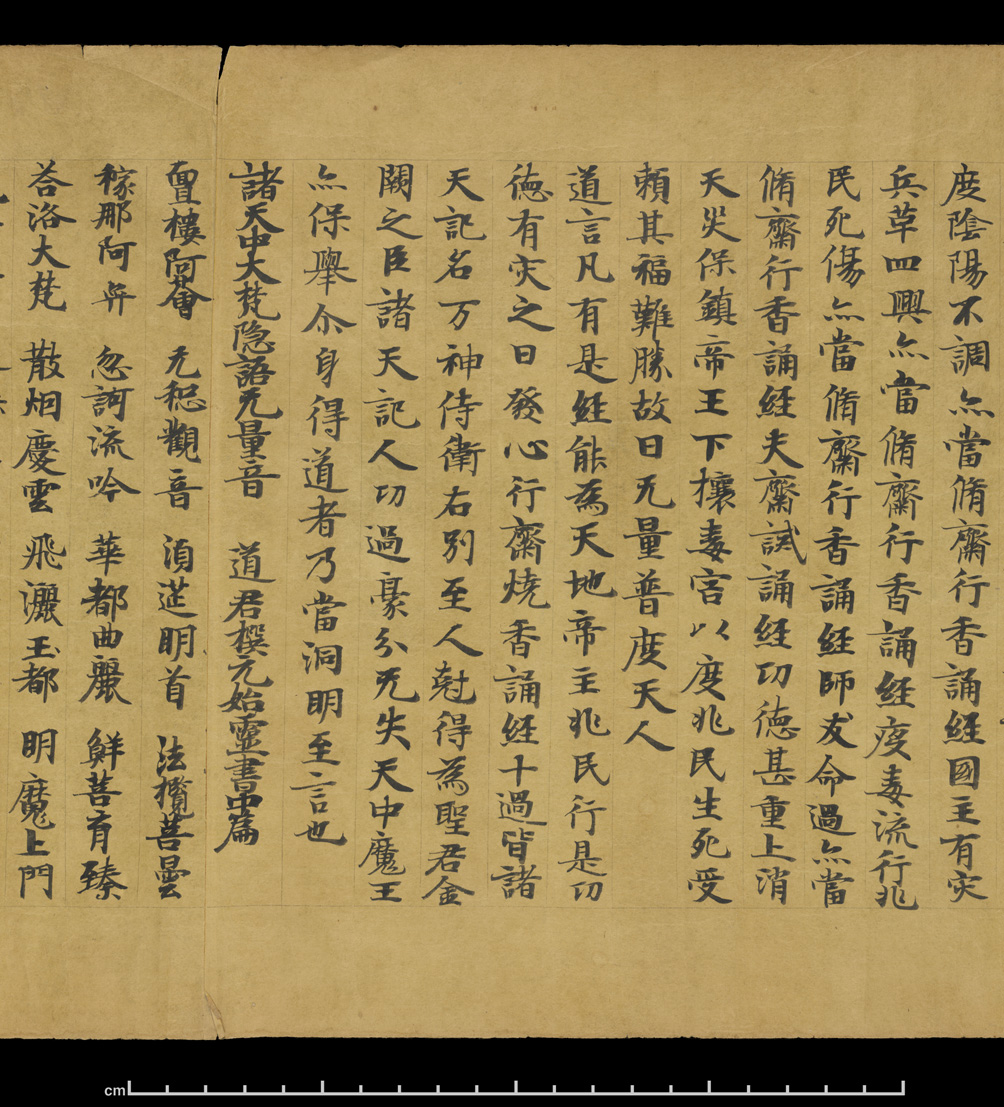 度陰陽不調亦當脩齋行香誦經國主有灾
兵革四興亦當脩齋行香誦經疫毒流行兆
民死傷亦當脩齋行香誦經師友命過亦當
脩齋行香誦經夫齋誡誦經功德甚重上消
天災保鎮帝王下攘毒害以度兆民生死受
賴其福難勝故曰无量普度天人
道言凡有是經能為天地帝主兆民行是功
德有灾之日發心行齋燒香誦經十過皆諸
天記名万神侍衛右別至人尅得為聖君金
闕之臣諸天記人功過豪分无失天中魔王
亦保舉尒身得道者乃當洞明至言也
諸天中大梵隱語无量音 道君撰元始靈書中篇
亶樓阿薈 无惒觀音 湏莚明首 法攬菩曇
稼那阿弈 忽訶流吟 華都曲麗 鮮菩育臻
荅洛大梵 散烟慶雲 飛灑玉都 明魔上門
cm